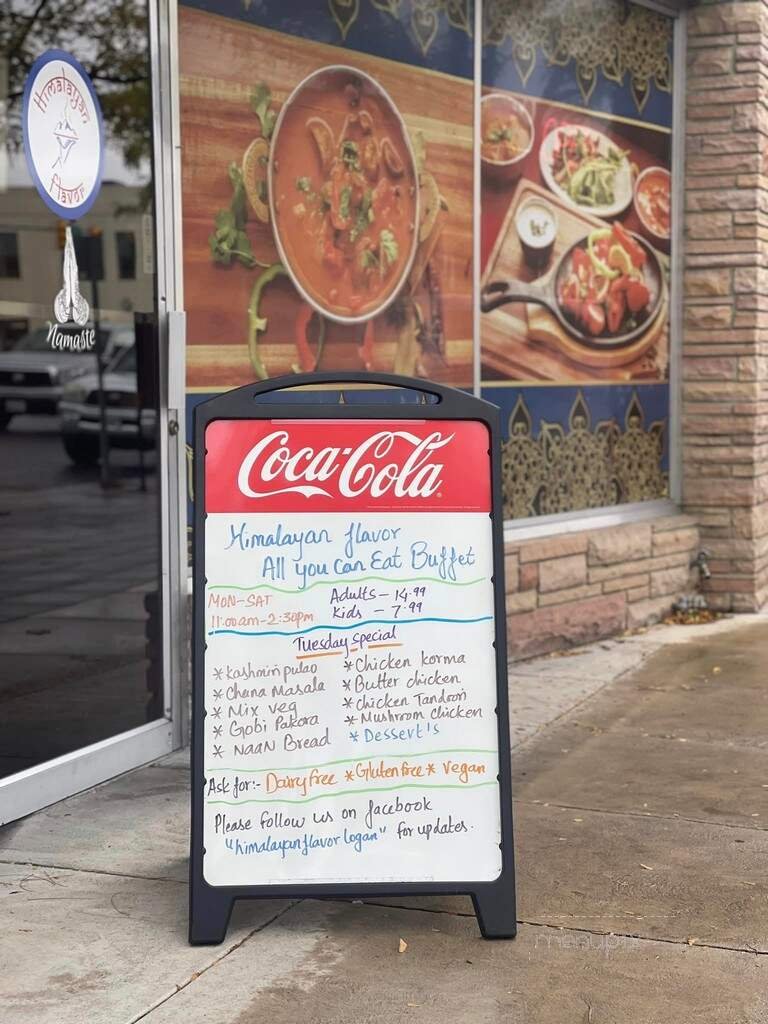 Himalayan
flavor
Namaste
Coca-Cola
Himalayan flavor
All you can Eat Buffet
MON-SAT
11:00am-2:30pm
Adults - 14.99
Kids - 7.99
Tuesday special
* Kashmiri pulao
* Chana Masala
* Mix veg
* Gobi Pakora
* NAAN Bread
* Chicken korma
* Butter chicken
* chicken Tandoori
* Mushroom chicken
* Dessert's
Ask for:- Dairy free * Gluten free * vegan
Please follow us on facebook
"himalayanflavor logan" for updates.